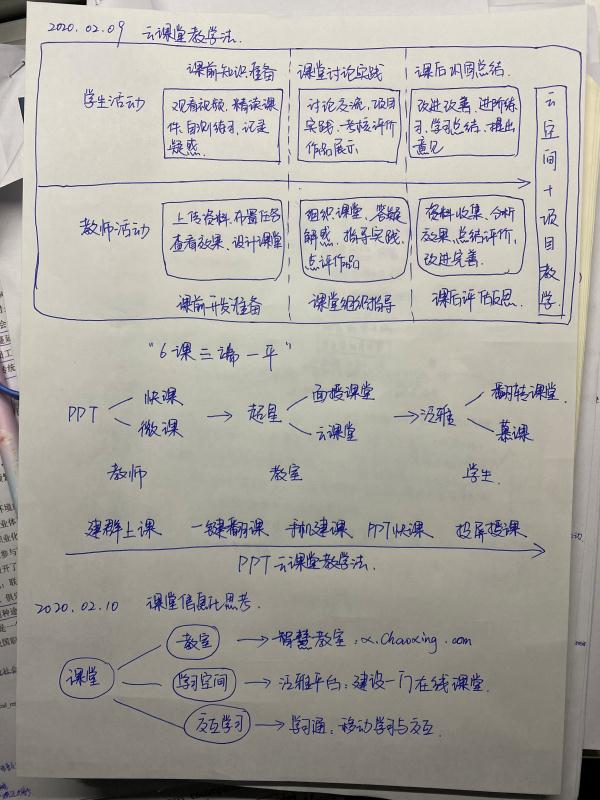 2020.02.09 云课堂教学法.
课前知识准备 课堂讨论实践 课后巩固总结.
学生活动
观看视频、精读课
件、自测练习、记录
疑惑.
讨论交流、项目
实践、考核评价
作品展示
改进改善、进阶练
习、学习总结、提出
意见
云空间+项目教学.
教师活动
上传资料、布置任务
查看效果、设计课堂
组织课堂、答疑
解惑、指导实践、
点评作品
资料收集、分析
效果、总结评价、
改进完善.
课前开发准备 课堂组织指导 课后评估反思.
“6课三端一平”
快课 面授课堂 翻转课堂.
PPT 超星 泛雅
微课 云课堂 慕课
教师 教室 学生.
建群上课 一键翻课 手机建课 PPT快课 投屏授课
PPT云课堂教学法.
2020.02.10 课堂信息化思考.
教室 智慧教室:x.chaoxing.com
课堂 学习空间 泛雅平台:建设一门在线课堂.
交互学习 学习通、移动学习与交互.